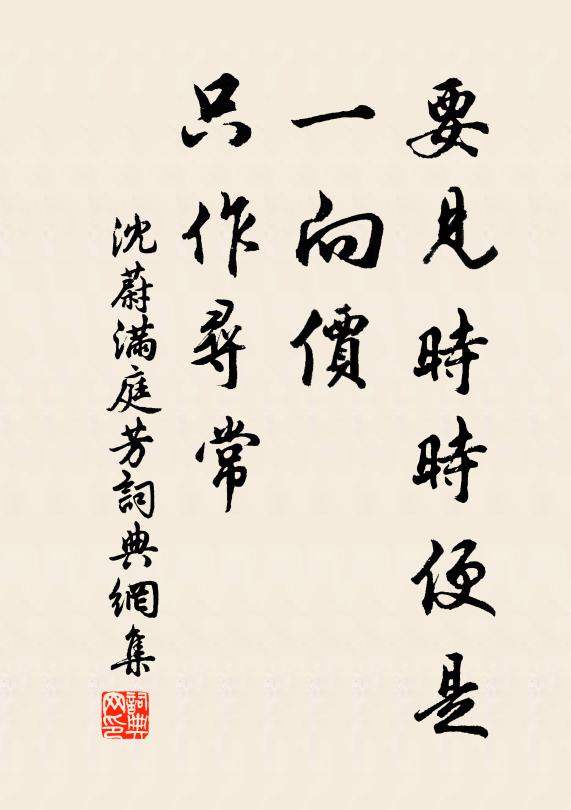 要見時時便是
一向價
只作尋常
沈蔚滿庭芳詞典網集
詞典网印